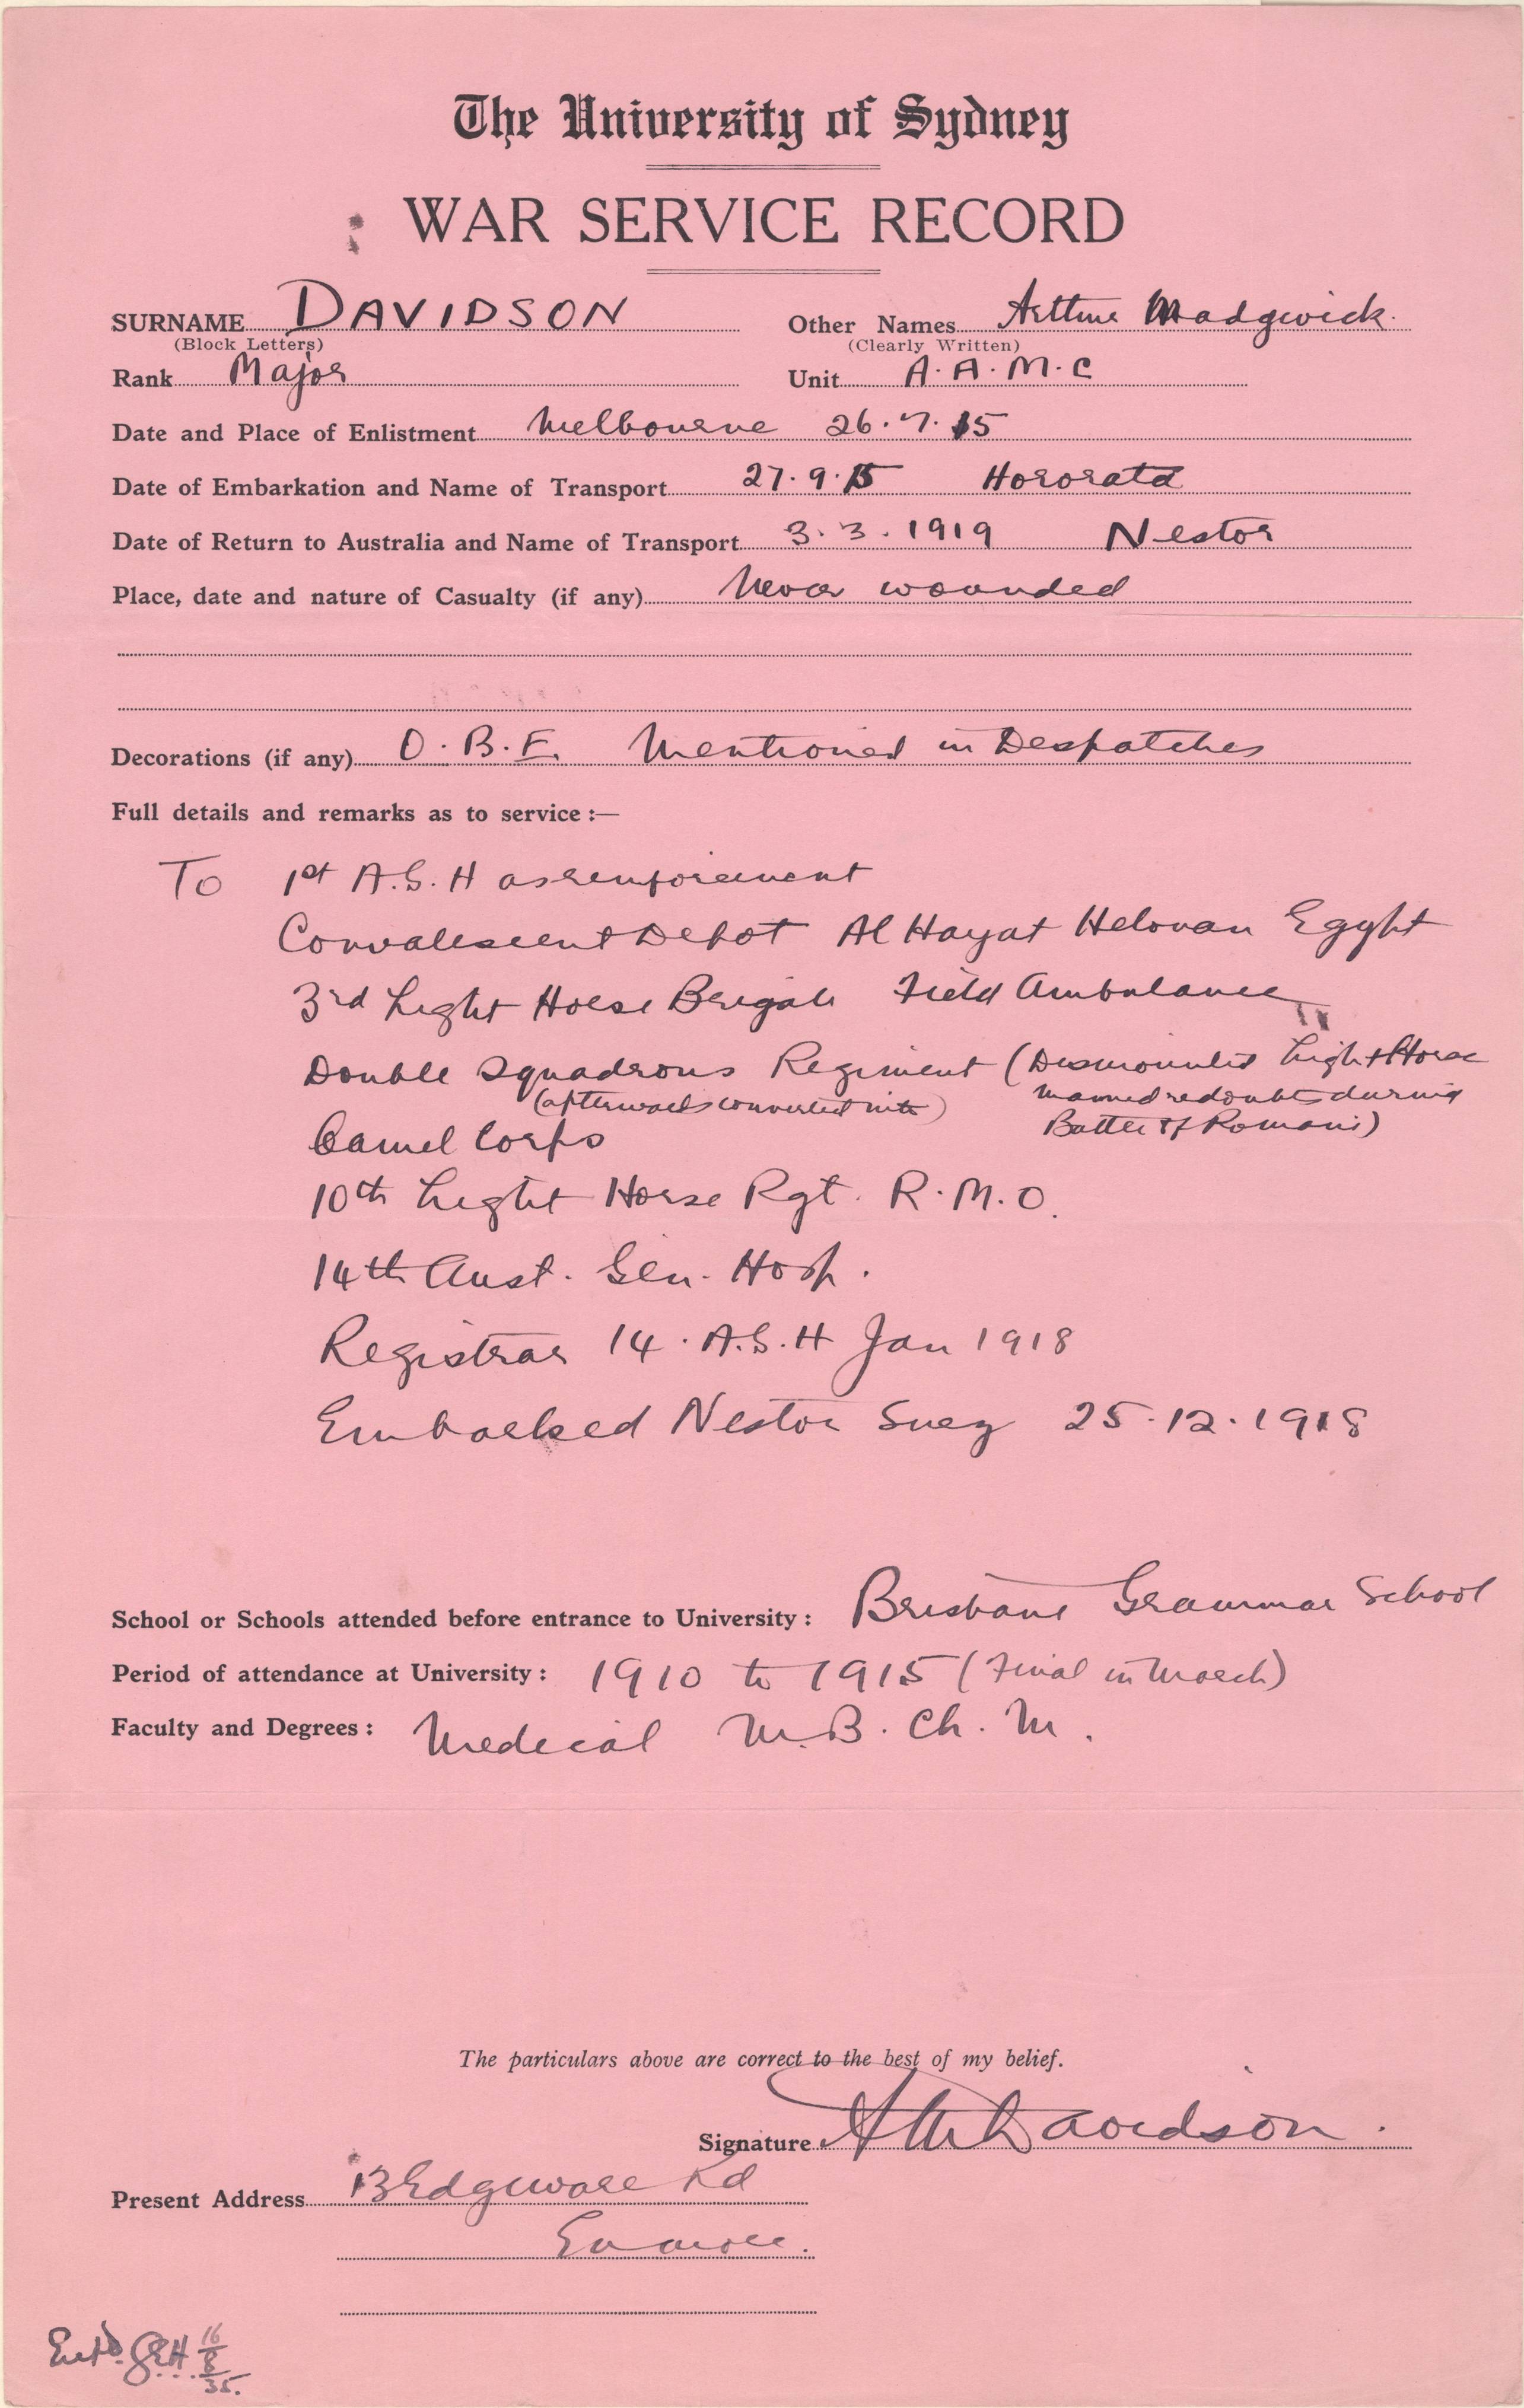 The University of Sydney
WAR SERVICE RECORD
SURNAME DAVIDSON Other Names Arthur Madgwick
(Block Letters) (Clearly Written)
Rank Major Unit A.A.M.C
Date and Place of Enlistment Melbourne 26.7.15
Date of Embarkation and Name of Transport 27.9.15 Hororata
Date of Return to Australia and Name of Transport 3.3.1919 Nestor
Place, date and nature of Casualty (if any) Never wounded
Decorations (if any) O.B.E. Mentioned in Despatches
Full details and remarks as to service :—
To 1st A.G.H as reinforcement
Convalescent Depot Al Hayat Helouan Egypt
3rd Light Horse Brigade Field Ambulance
Double Squadrons Regiment (Dismounted Light Horse
(afterwards converted into) manned redoubts during
Camel Corps Battle of Romani)
10th Light Horse Rgt. R.M.O.
14th Aust. Gen. Hosp.
Registrar 14.A.G.H Jan 1918
Embarked Nestor Suez 25.12.1918
School or Schools attended before entrance to University : Brisbane Grammar School
Period of attendance at University : 1910 to 1915 (Final in March)
Faculty and Degrees : Medical M.B. Ch. M.
The particulars above are correct to the best of my belief.
Signature A M Davidson.
Present Address Edgeware Rd
Enmore.
Entd. 16/8/35.